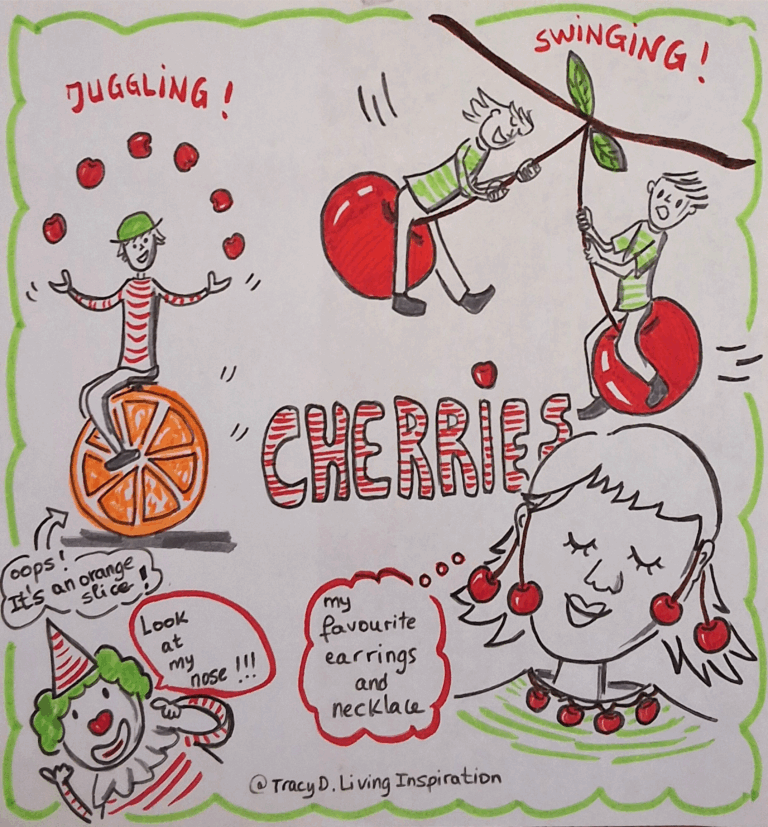 JUGGLING!
SWINGING!
CHERRIES
oops!
It's an orange
slice!
Look
at
my
nose!!!
my
favourite
earrings
and
necklace
@TracyD. Living Inspiration